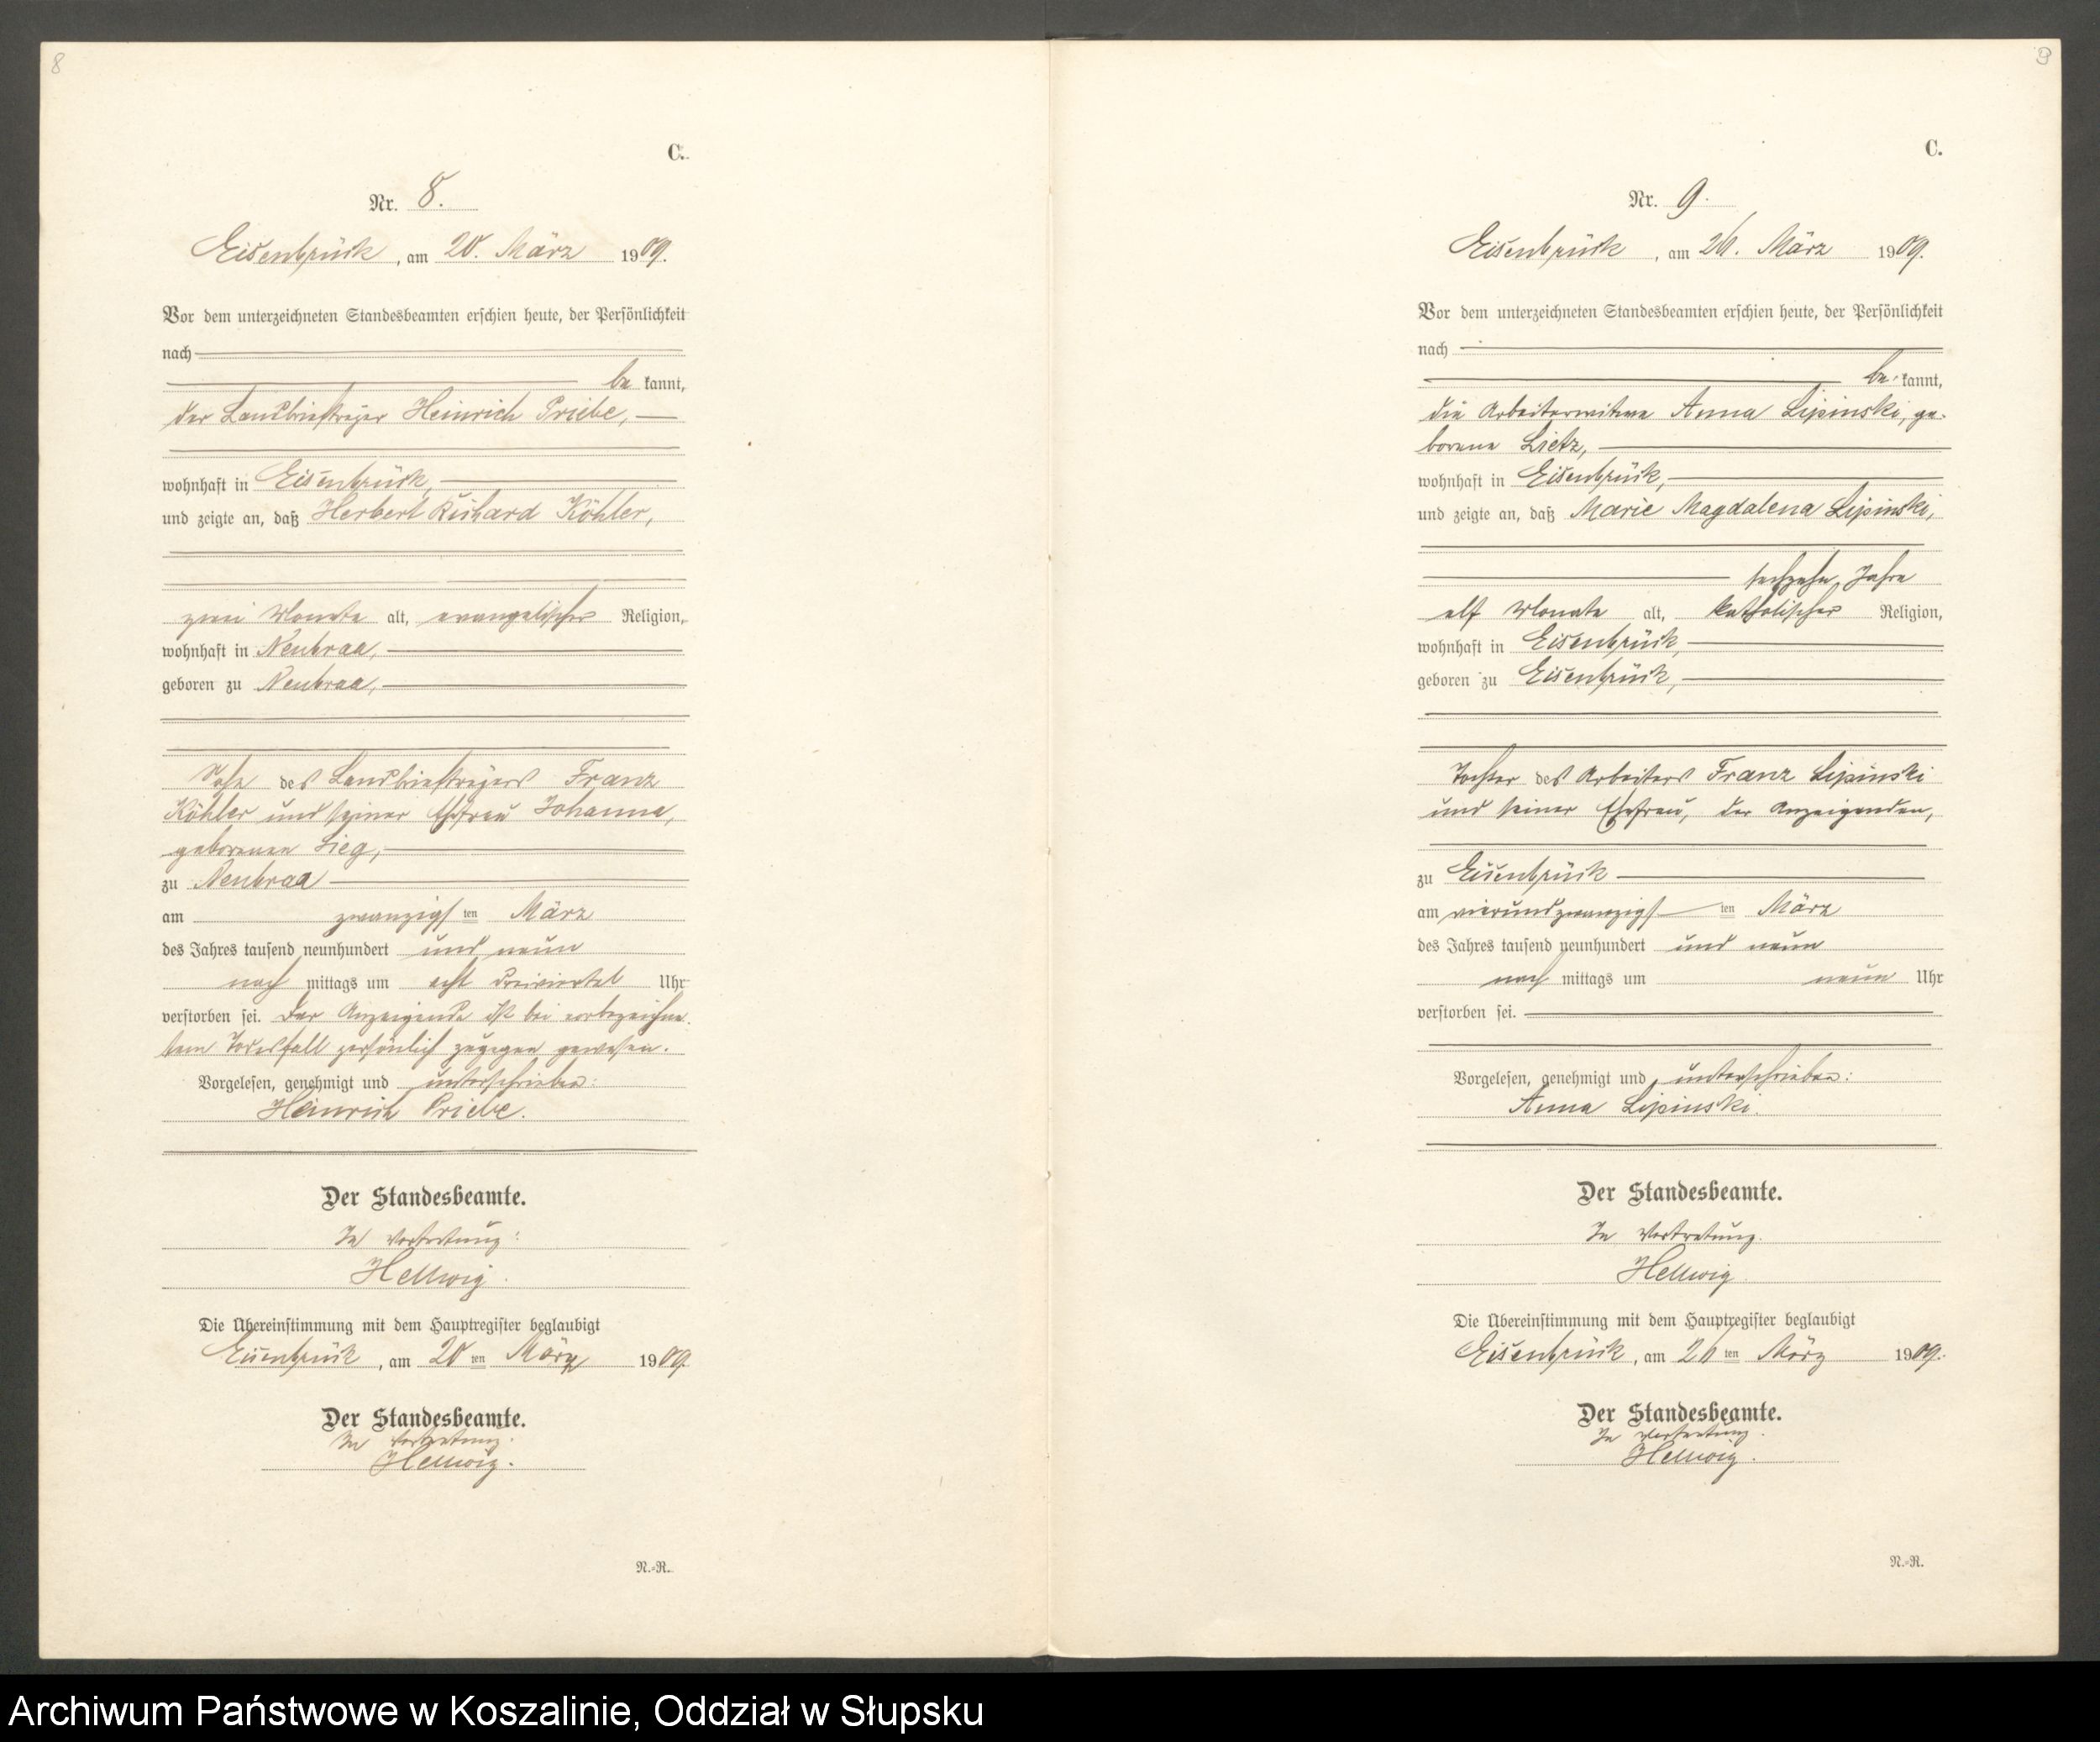 8
C.
Nr. 8.
Eisenbrück, am 20. März 1909.
Vor dem unterzeichneten Standesbeamten erschien heute, der Persönlichkeit
nach
be kannt,
der Landbriefträger Heinrich Priebe,
wohnhaft in Eisenbrück,
und zeigte an, daß Herbert Richard Köhler,
zwei Monate alt, evangelischer Religion,
wohnhaft in Neubraa,
geboren zu Neubraa,
Sohn des Landbriefträgers Franz
Köhler und seiner Ehefrau Johanna,
geborenen Sieg,
zu Neubraa
am zwanzigsten März
des Jahres tausend neunhundert und neun
nach mittags um acht dreiviertel Uhr
verstorben sei. Der Anzeigende ist bei vorbezeichne-
tem Todesfall persönlich zugegen gewesen.
Vorgelesen, genehmigt und unterschrieben:
Heinrich Priebe.
Der Standesbeamte.
In Vertretung:
Hellwig.
Die Übereinstimmung mit dem Hauptregister beglaubigt
Eisenbrück, am 20 ten März 1909.
Der Standesbeamte.
In Vertretung.
Hellwig.
N.-R.
9
C.
Nr. 9.
Eisenbrück, am 26. März 1909.
Vor dem unterzeichneten Standesbeamten erschien heute, der Persönlichkeit
nach
be kannt,
die Arbeiterwitwe Anna Lipinski, ge-
borene Lietz,
wohnhaft in Eisenbrück,
und zeigte an, daß Marie Magdalena Lipinski,
sechzehn Jahre
elf Monate alt, katholischer Religion,
wohnhaft in Eisenbrück,
geboren zu Eisenbrück,
Tochter des Arbeiters Franz Lipinski
und seiner Ehefrau, der Anzeigenden,
zu Eisenbrück
am vierundzwanzigsten März
des Jahres tausend neunhundert und neun
nach mittags um neun Uhr
verstorben sei.
Vorgelesen, genehmigt und unterschrieben:
Anna Lipinski.
Der Standesbeamte.
In Vertretung.
Hellwig.
Die Übereinstimmung mit dem Hauptregister beglaubigt
Eisenbrück, am 26 ten März 1909.
Der Standesbeamte.
In Vertretung.
Hellwig.
N.-R.
Archiwum Państwowe w Koszalinie, Oddział w Słupsku